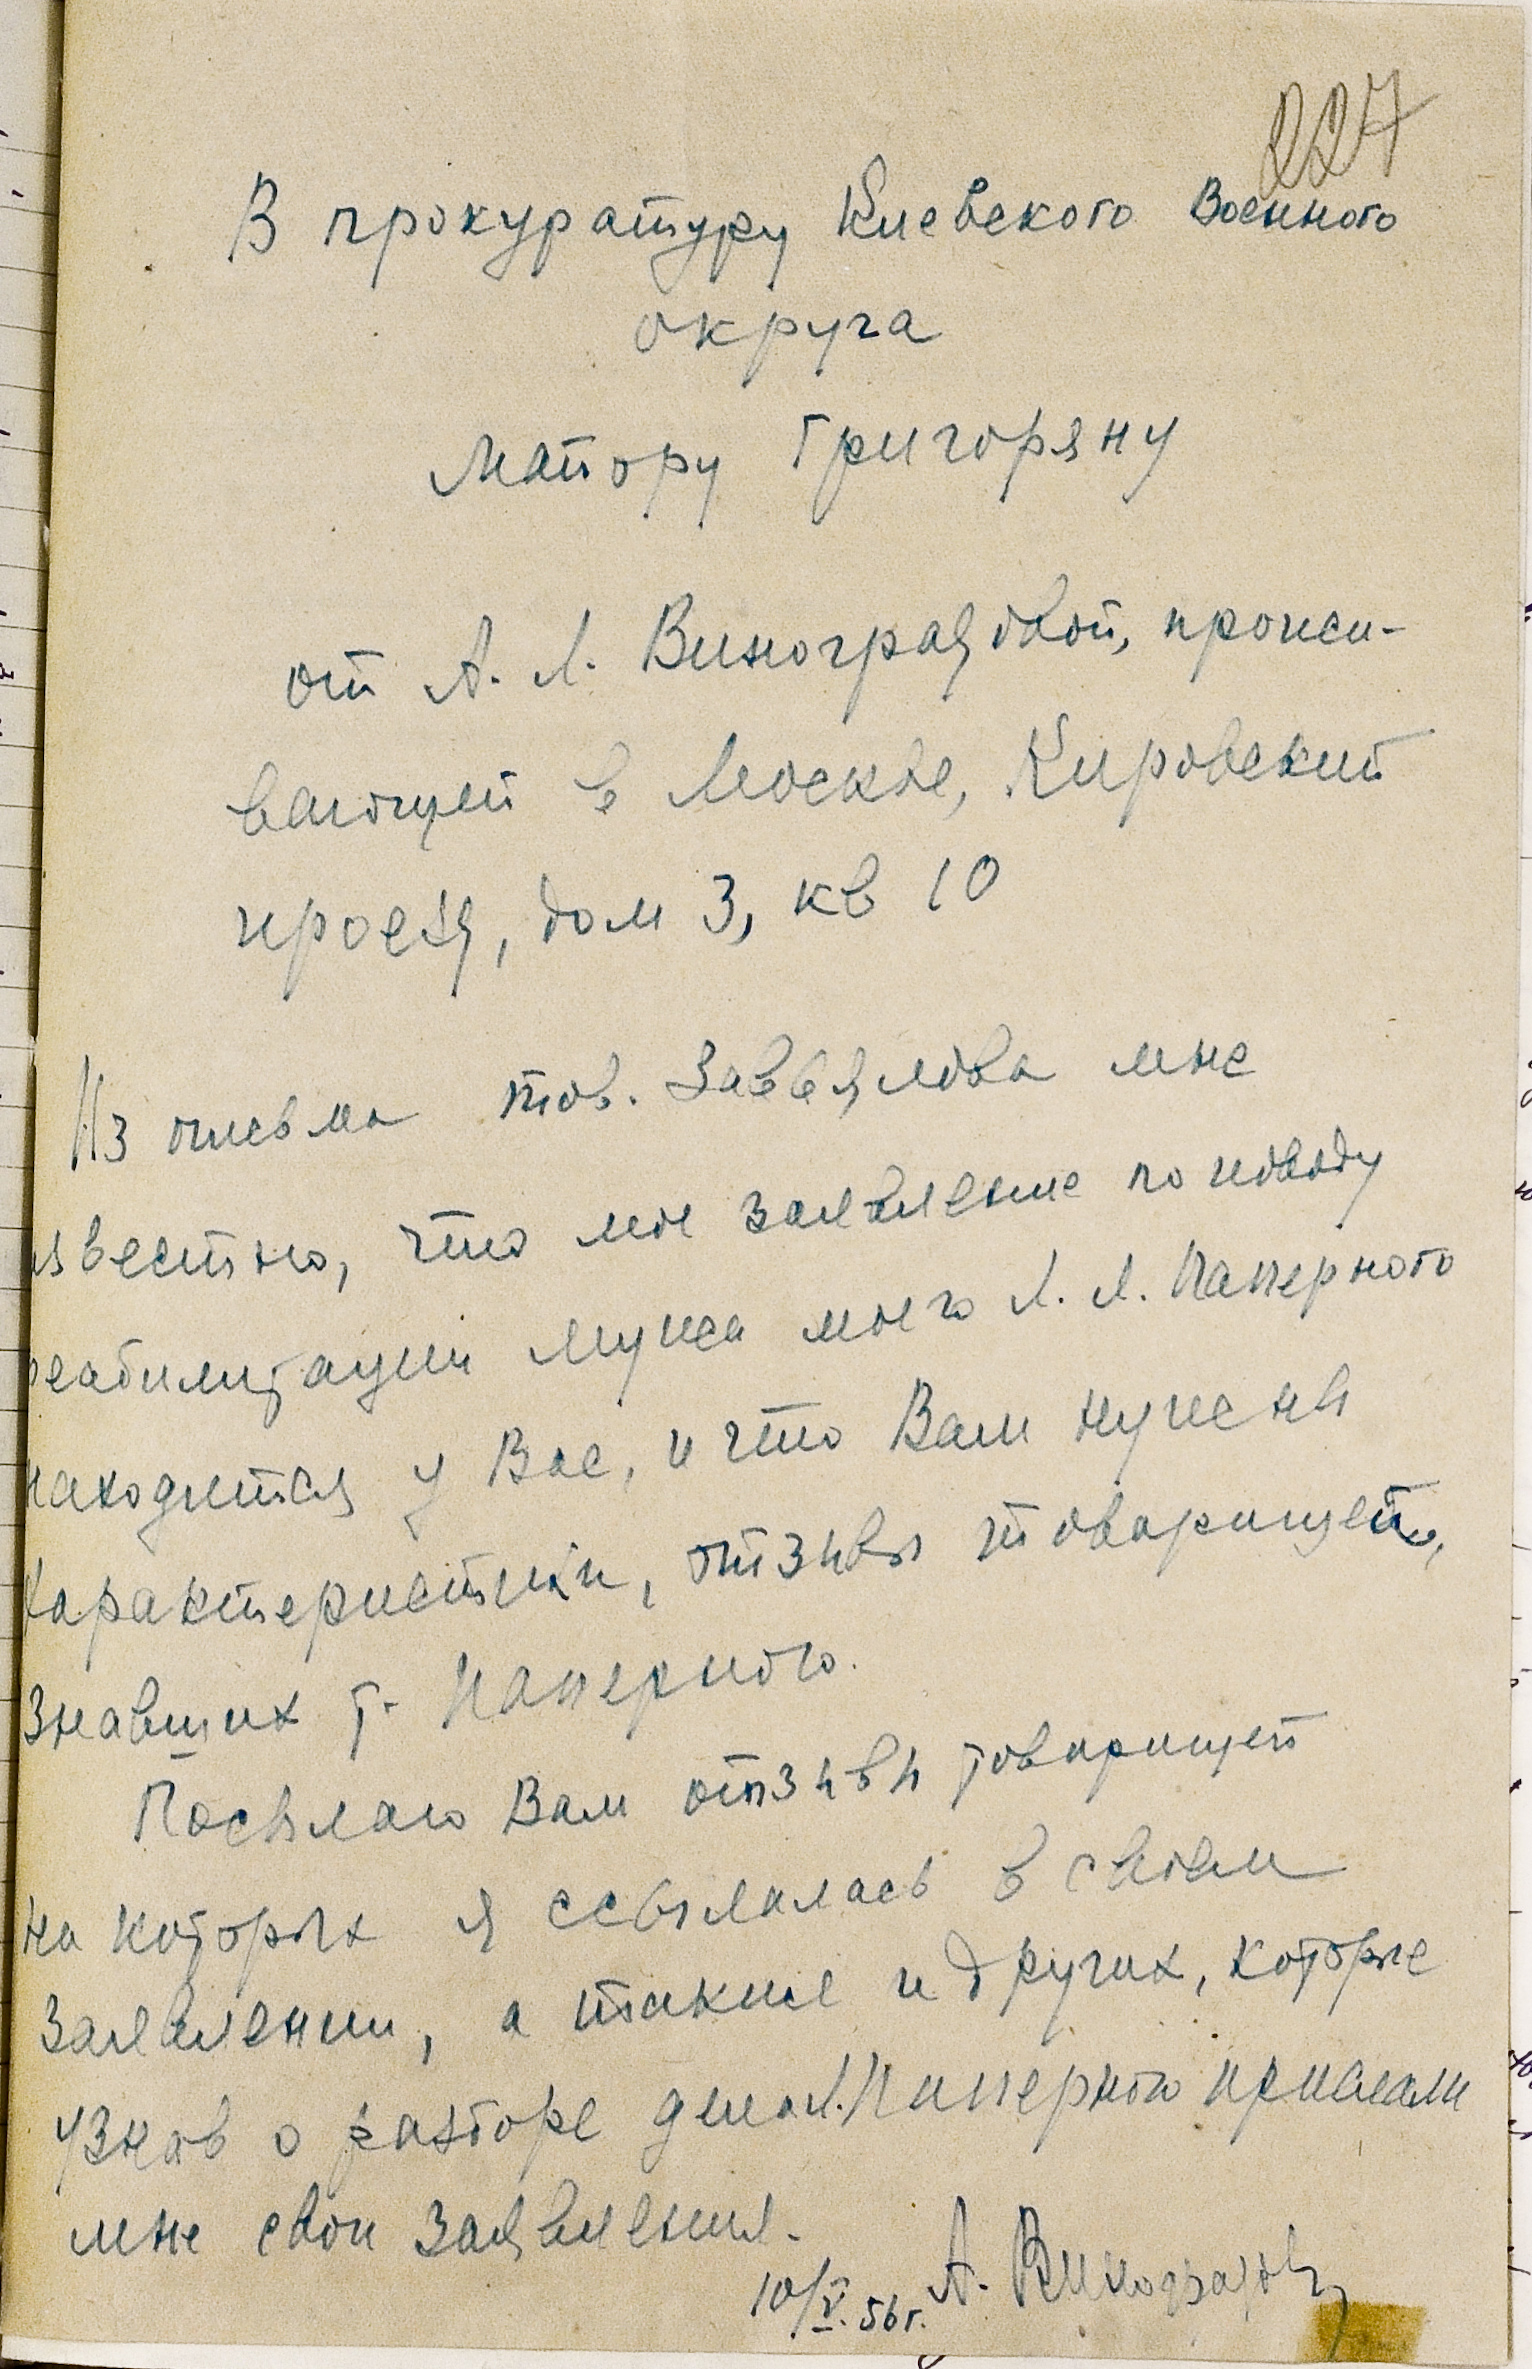 227
В прокуратуру Киевского Военного
округа
Майору Григоряну
от А. Л. Виноградовой, прожи-
вающей в Москве, Кировский
проезд, дом 3, кв 10
Из письма тов. Заввялова мне
известно, что мое заявление по поводу
реабилитации мужа моего Л. Л. Паперного
находится у Вас, и что Вам нужны
характеристики, отзывы товарищей,
знавших т. Паперного.
Посылаю Вам отзывы товарищей
на которых я ссылалась в своем
заявлении, а также и других, которые
узнав о разборе дела Л. Паперного прислали
мне свои заявления.
10/V.56г. А. Виноградова